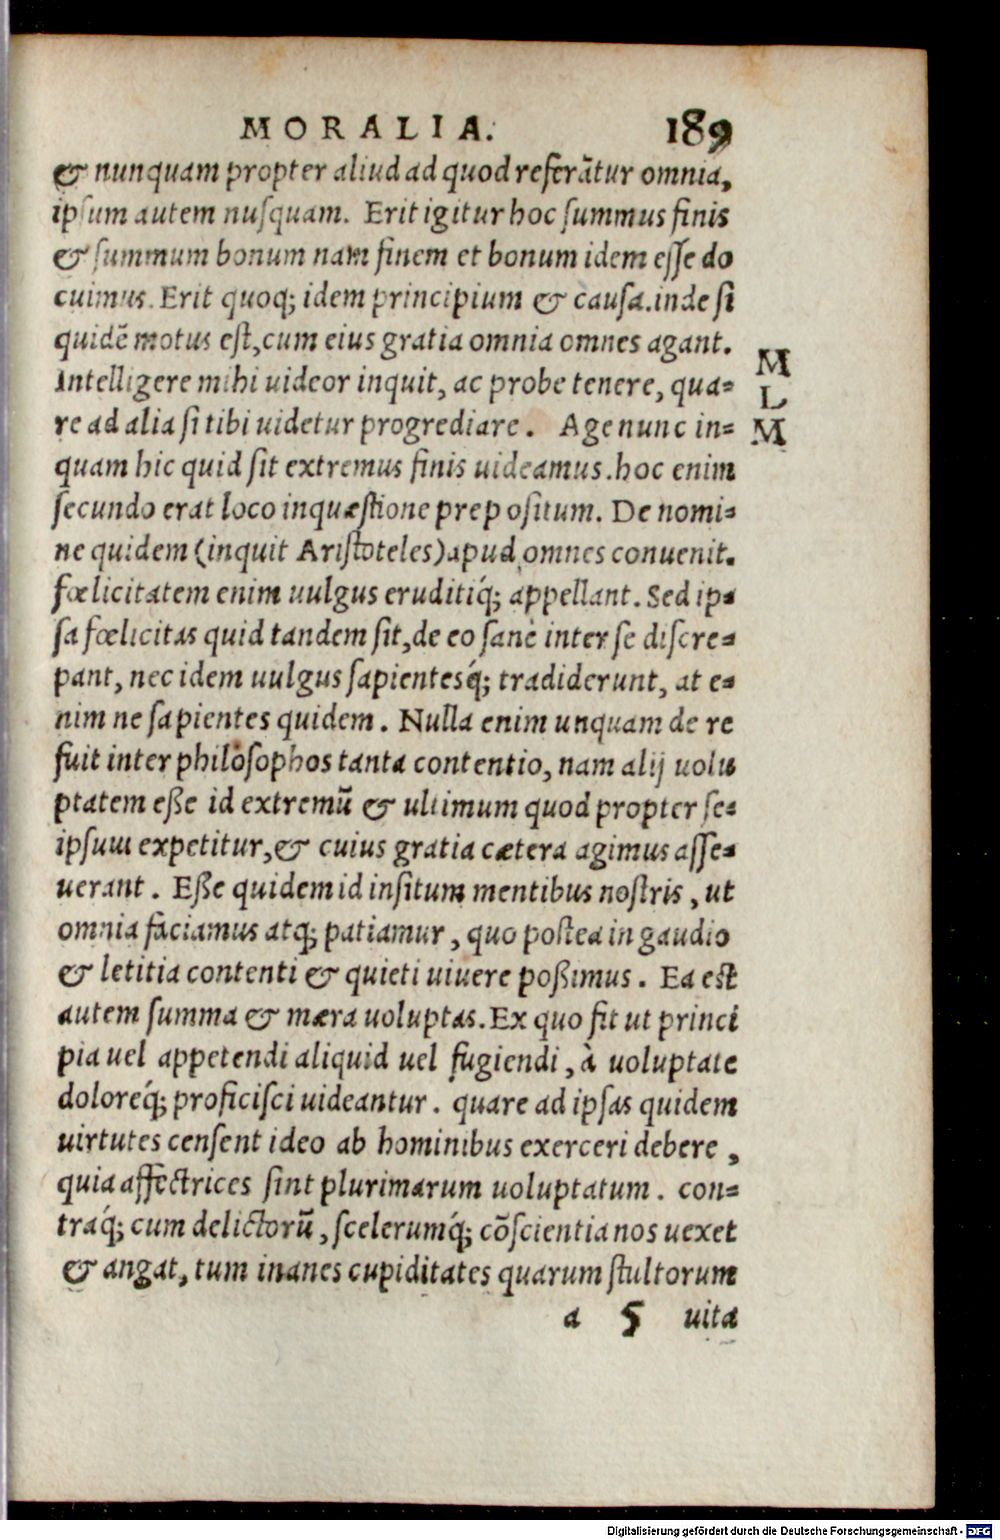 MORALIA. 189
& nunquam propter aliud ad quod referātur omnia,
ipsum autem nusquam. Erit igitur hoc summus finis
& summum bonum nam finem et bonum idem esse do
cuimus. Erit quoq; idem principium & causa. inde si
quidē motus est, cum eius gratia omnia omnes agant.
Intelligere mihi uideor inquit, ac probe tenere, qua= M
L
re ad alia si tibi uidetur progrediare. Age nunc in= M
quam hic quid sit extremus finis uideamus. hoc enim
secundo erat loco inquæstione prepositum. De nomi=
ne quidem (inquit Aristoteles) apud omnes conuenit.
fœlicitatem enim uulgus eruditiq́; appellant. Sed ip=
sa fœlicitas quid tandem sit, de eo sanè inter se discre=
pant, nec idem uulgus sapientesq́; tradiderunt, at e=
nim ne sapientes quidem. Nulla enim unquam de re
fuit inter philosophos tanta contentio, nam alij uolu
ptatem eße id extremū & ultimum quod propter se=
ipsum expetitur, & cuius gratia cætera agimus asse=
uerant. Eße quidem id insitum mentibus nostris, ut
omnia faciamus atq; patiamur, quo postea in gaudio
& letitia contenti & quieti uiuere poßimus. Ea est
autem summa & mæra uoluptas. Ex quo fit ut princi
pia uel appetendi aliquid uel fugiendi, à uoluptate
doloreq́; proficisci uideantur. quare ad ipsas quidem
uirtutes censent ideo ab hominibus exerceri debere,
quia affectrices sint plurimarum uoluptatum. con=
traq́; cum delictorū, scelerumq́; cōscientia nos uexet
& angat, tum inanes cupiditates quarum stultorum
a 5 uita
Digitalisierung gefördert durch die Deutsche Forschungsgemeinschaft - DFG